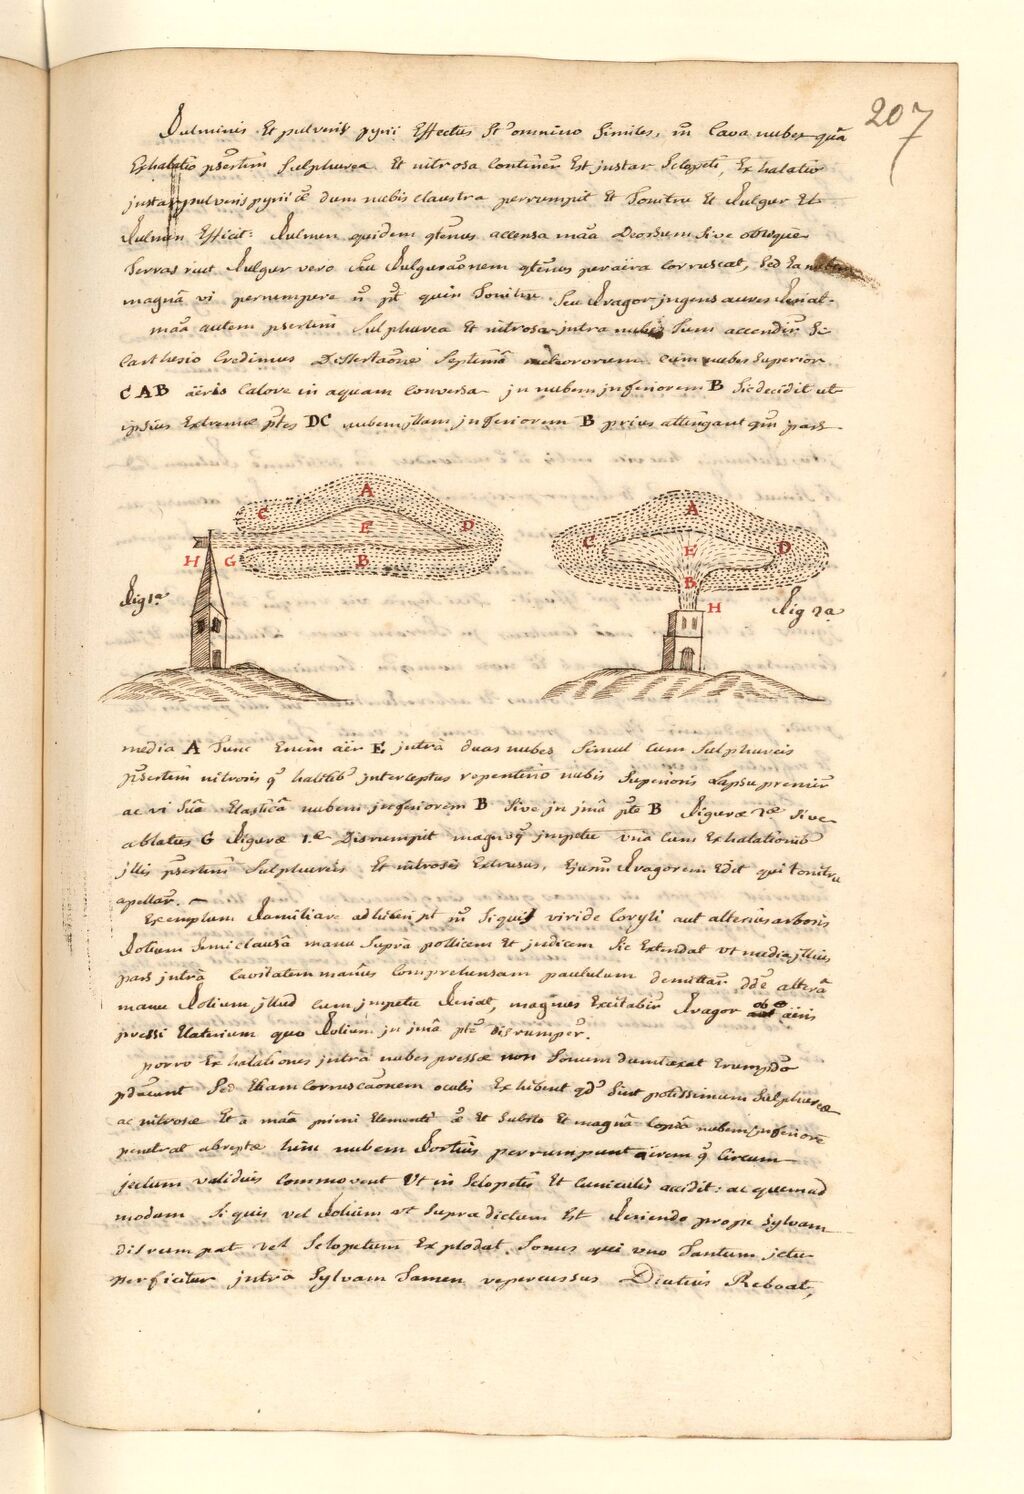 207
Fulminis Et pulveris pyrii Effectus St omnino Similes, in Cava nubes quā
Exhalatio psertim Sulphurea Et nitrosa Continēr Est justar Sclopeti, Exhalatio
justar pulveris pyrii dum nubis claustra perrumpit Et Tonitru Et Fulgur Et
Fulmen Efficit: Fulmen quidem qtenus accensa māa Deorsum Sive obliquè
terras ruit Fulgur vero Seu Fulguraōnem qtenus per aëra Corruscat, Sed Ea nubem
magnā vi perrumpere n pt quin Tonitru Seu Fragor jngens aures Feriat.
māa autem psertim Sulphurea Et nitrosa jntra nubes Tum accendir Si
Carthesio Credimus Dissertaōne Septimā meteororum cum nubes Superior
C A B äeris Calore in aquam Conversa jn nubem jnferiorem B Sic decidit ut
ipsius Extremæ ptes DC nubem jllam jnferiorem B prius attingant qm pars
A
C
E
D
H
G
B
Fig 1a
A
C
E
D
B
H
Fig 2a
media A Tunc Enim aër E jntrà duas nubes Simul Cum Sulphureis
psertim nitrosis q halitib jnterceptus repentino nubis Superioris Lapsu premir
ac vi Suā Elasticā nubem jnferiorem B Sive jn jmā pte B Figuræ 2æ Sive
ablatus G Figuræ 1æ Disrumpit magnoq jmpetu vnà Cum Exhalationib
jllis psertim Sulphureis Et nitrosis Extrusus, Ejusm Fragorem Edit qui tonitru
apellar.
Exemplum Familiare adhiberi pt in Siquis viride Coryli aut alterius arboris
Folium Semiclausā manu Suprà pollicem Et jndicem Sic Extendat Vt media jllius
pars jntrà Cavitatem manûs Comprehensam paululum demittar dde alterā
manu Folium jllud Cum jmpetu Feriat, magnus Excitabir Fragor ob äeris
pressi Elaterium quo Folium jn jmā pte disrumper.
porro Exhalationes jntrà nubes pressæ non Sonum dumtaxat Erumpdo
pdcunt Sed Etiam Corruscaōnem oculis Exhibent qd Sint potissimum Sulphureæ
ac nitrosæ Et à māa primi Elementi Et Subito Et magnā Copiā nubem jnferiorē
penetrat abreptæ hinc nubem Fortius perrumpunt äerem q Circum
jectum validius commovent Vt in Sclopetis Et Cuniculis accidit: ac quemad
modum Si quis vel Folium vt Supra dictum Est Feriendo prope Sylvam
disrumpat vel Sclopetum Explodat Sonus qui vno Tantum jctu
perficitur jntrà Sylvam Tamen repercussus Diutius Reboat,